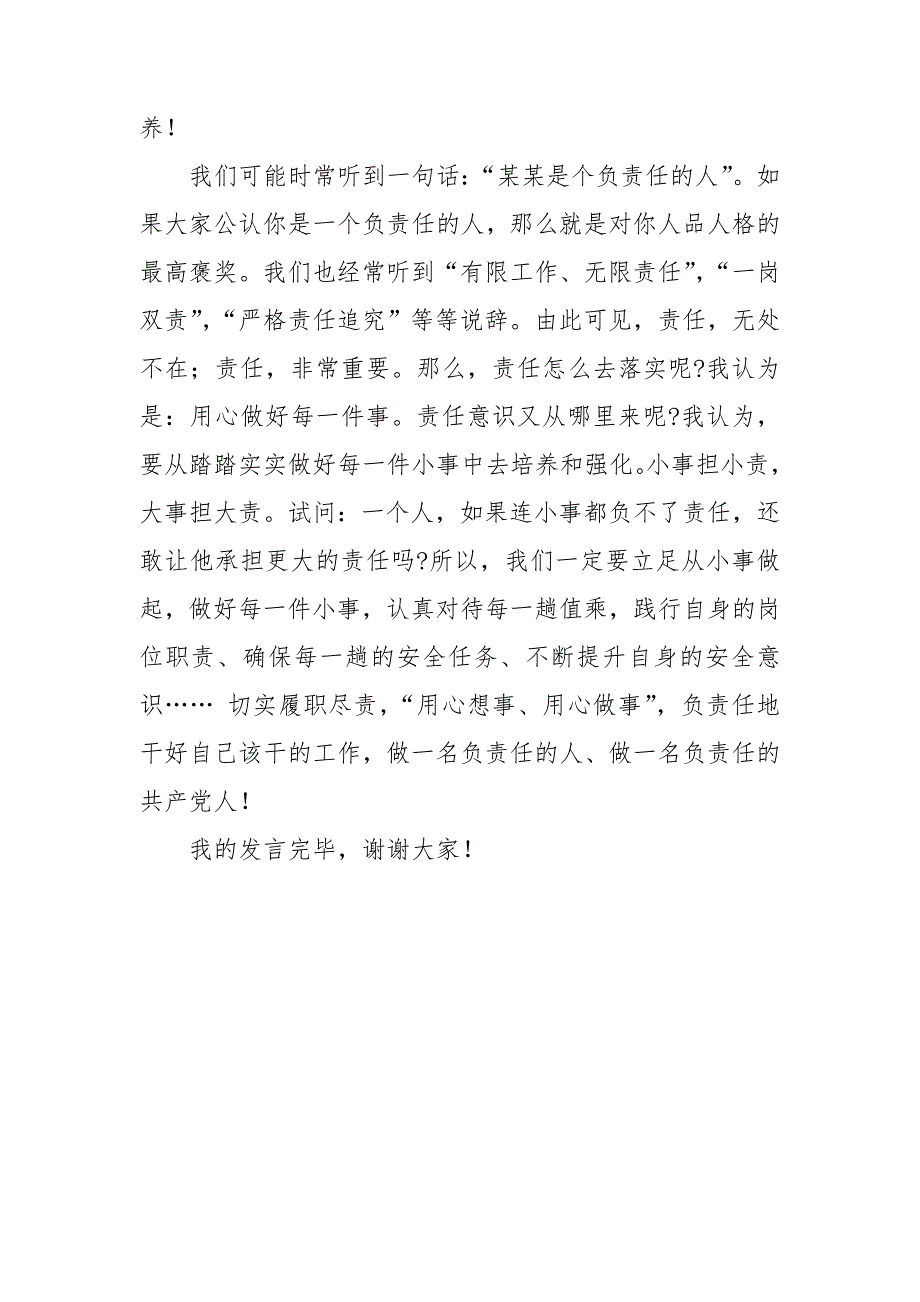 养！
我们可能时常听到一句话：“某某是个负责任的人”。如
果大家公认你是一个负责任的人，那么就是对你人品人格的
最高褒奖。我们也经常听到“有限工作、无限责任”，“一岗
双责”，“严格责任追究”等等说辞。由此可见，责任，无处
不在；责任，非常重要。那么，责任怎么去落实呢?我认为
是：用心做好每一件事。责任意识又从哪里来呢?我认为，
要从踏踏实实做好每一件小事中去培养和强化。小事担小责，
大事担大责。试问：一个人，如果连小事都负不了责任，还
敢让他承担更大的责任吗?所以，我们一定要立足从小事做
起，做好每一件小事，认真对待每一趟值乘，践行自身的岗
位职责、确保每一趟的安全任务、不断提升自身的安全意
识…… 切实履职尽责，“用心想事、用心做事”，负责任地
干好自己该干的工作，做一名负责任的人、做一名负责任的
共产党人！
我的发言完毕，谢谢大家！